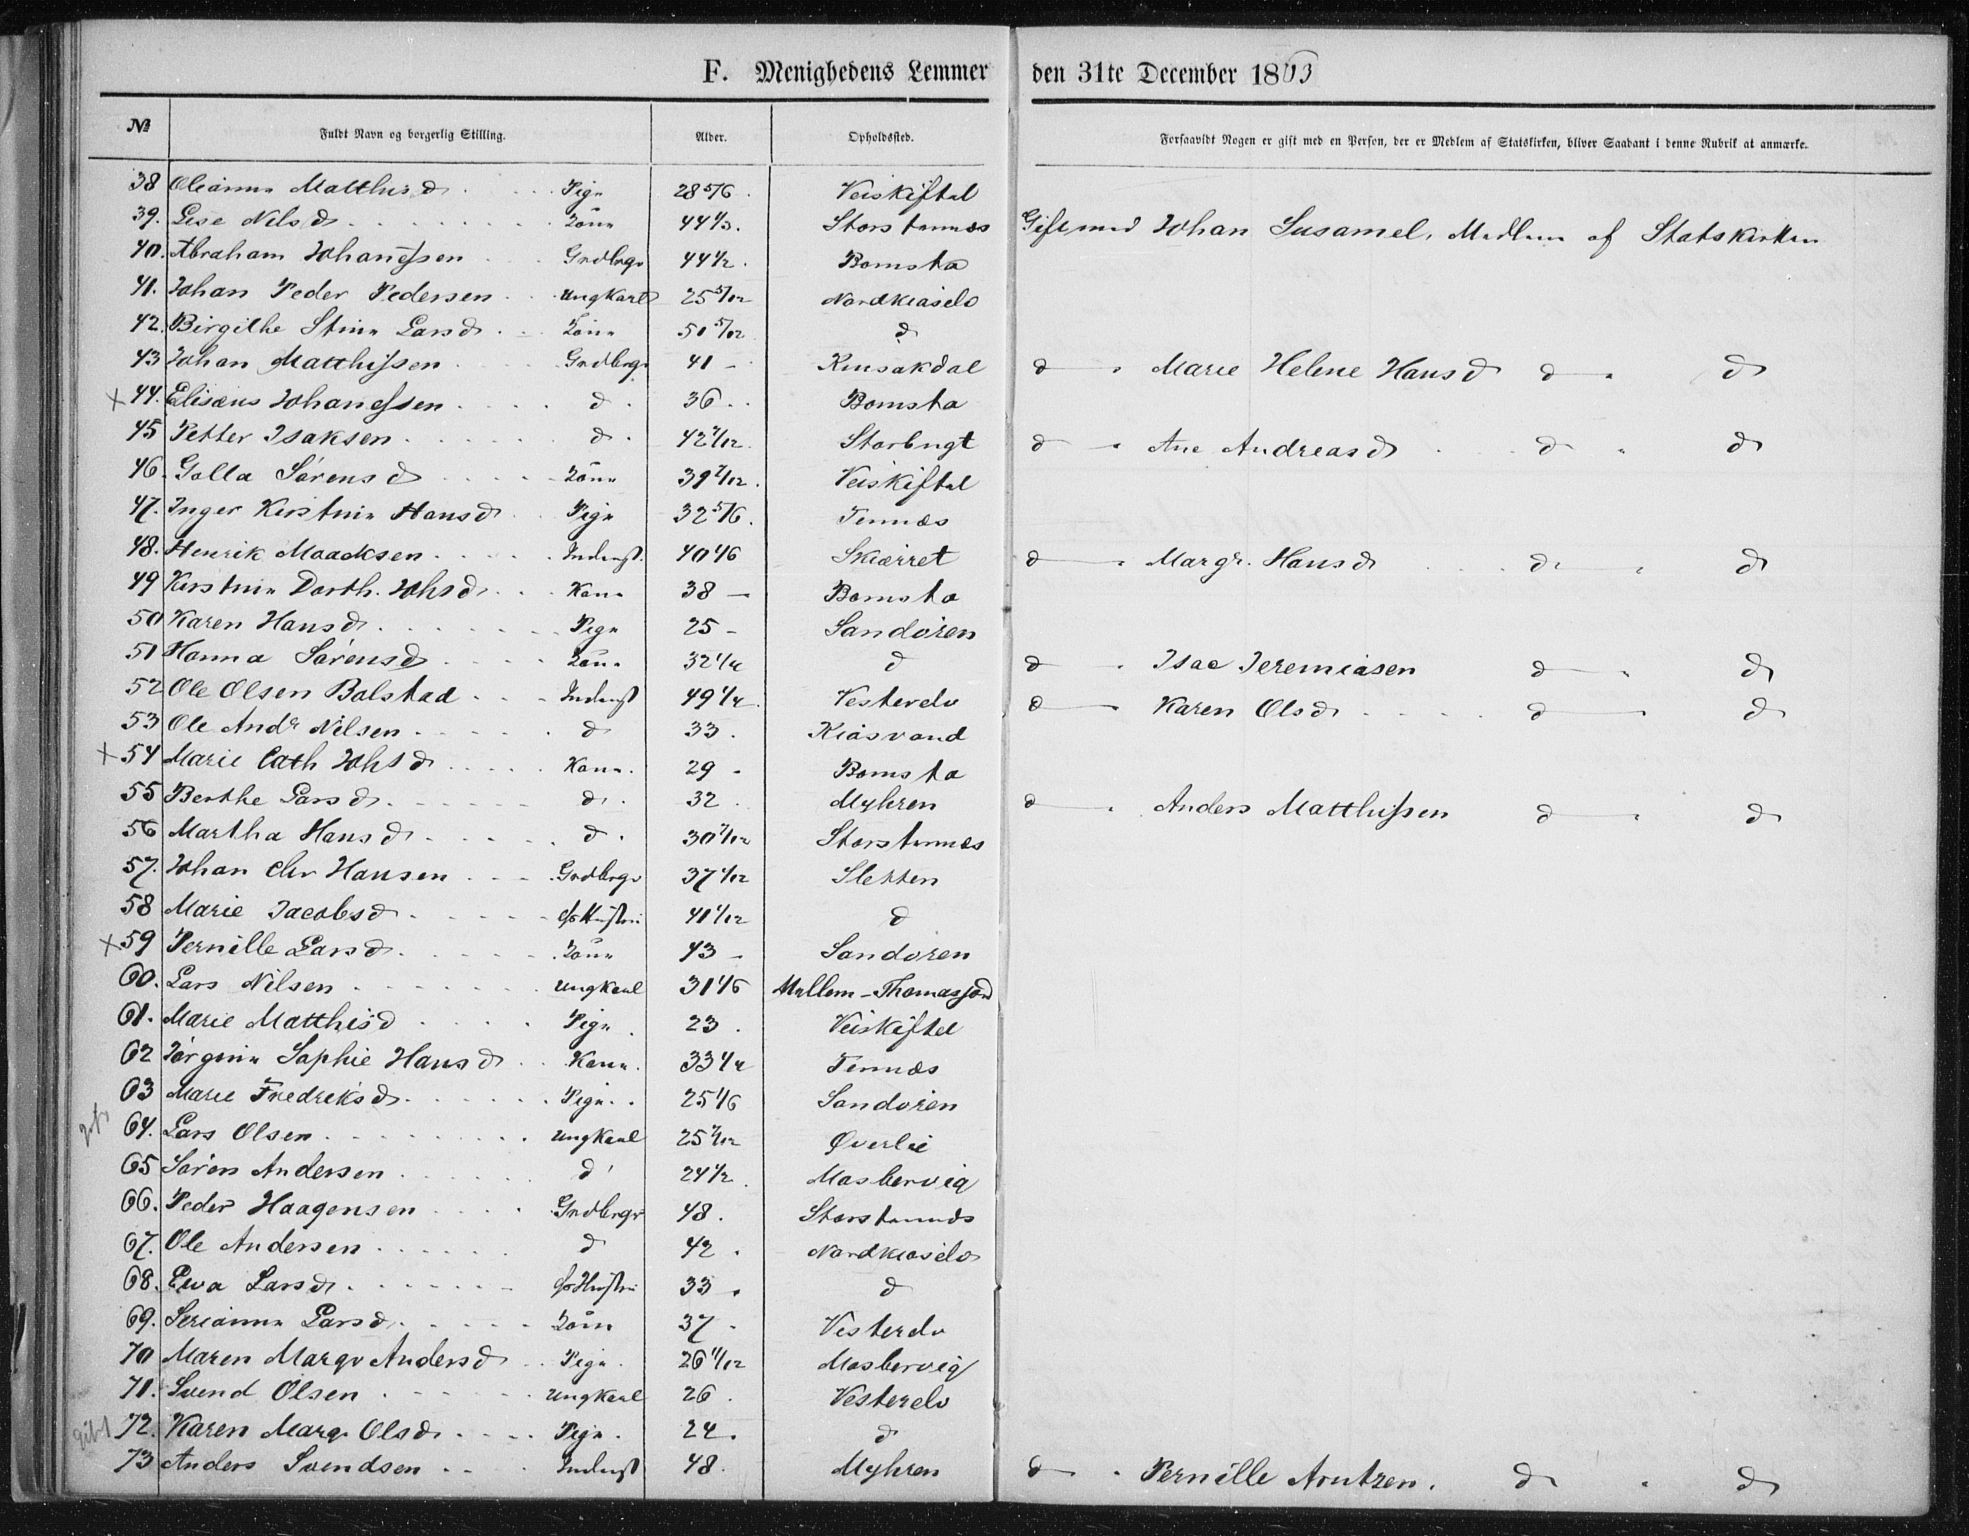 F. Menighedens Lemmer den 31te December 1863
№ Fuldt Navn og borgerlig Stilling. Alder. Opholdssted. Forsaavidt Nogen er gift med en Person, der er Medlem af Statskirken, bliver Saadant i denne Rubrik at anmærke.
38 Olianna Matthisd Pige 28 5/6 Veiskiftet
39. Lise Nilsd Kone 44 1/3. Storstennæs Gift med Johan Susamel, Medlem af Statskirken
40. Abraham Johanessen Grdbrgr 44 1/2. Bomsta
41. Johan Peder Pedersen Ungkarl 25 5/12 Nordkiäselv
42. Birgithe Stina Larsd Kone 50 5/12 d
43 Johan Matthissen Grdbrgr 41 - d " Marie Helene Hansd d " d
x 44. Elisæus Johanessen d 36. Bomsta
45 Petter Isaksen d 42 7/12 Storbugt d " Ane Andreasd d " d
46. Golla Sörensd Kone 39 7/12. Veiskiftet
47. Inger Kirstine Hansd Pige 32 5/6. Tennæs
48. Henrik Maacksen Inderst. 40 1/6 Skiærret d " Margr. Hansd d " d
49 Kirstine Dorth. Johsd Kone 38 - Bomsta
50 Karen Hansd Pige 25 - Sandören
51 Hanna Sörensd Kone 32 1/4 d d " Isac Jeremiasen d " d
52 Ole Olsen Balstad Inderst 49 1/4. Vesterelv d " Karen Olsd d " d
53 Ole Andr Nilsen d 33. Kiäsvand
x 54 Marie Cath Johsd Kone. 29 - Bomsta
55 Berthe Larsd d 32. Myhren d " Anders Matthissen d " d
56 Martha Hansd d. 30 7/12 Storstennæs
57. Johan Chr Hansen Grdbrgr 37 1/12 Sletten
58 Marie Jacobsd ds Hustru 41 1/12 d
x 59 Pernille Larsd Kone 43 - Sandören
60. Lars Nilsen Ungkarl 31 1/6 Mellem-Thomasjord
61. Marie Matthisd Pige. 23. Veiskiftet
62 Jörgine Sophie Hansd Kone. 33 1/4 Tennæs
63 Marie Fredriksd Pige. 25 1/6 Sandören
64. Lars Olsen Ungkarl 25 7/12 Överlie
65 Sören Andersen d 24 1/2. Masbervig
66. Peder Haagensen Grdbrgr 48. Storstennæs
67. Ole Andersen d 42. Nordkiäselv
68. Ewa Larsd ds Hustru 33. d
69. Serianna Larsd Kone 37 - Vesterelv
70 Maren Margr Andersd Pige. 26 11/12 Masbervig
71. Svend Olsen Ungkarl 26. Vesterelv
gift 72. Karen Margr Olsd Pige. 24. d
73 Anders Svendsen Inderst 48. Myhren d " Pernille Arntzen. d " d